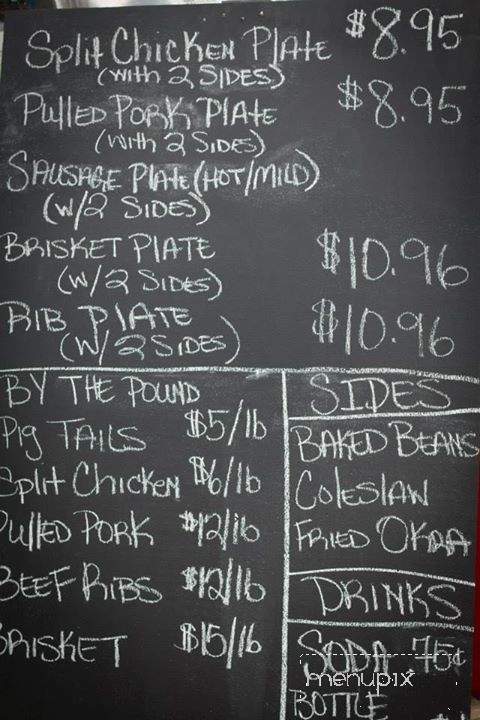 Split Chicken Plate $8.95
(with 2 Sides)
Pulled Pork Plate $8.95
(with 2 Sides)
Sausage Plate (Hot/Mild)
(w/2 Sides)
Brisket Plate $10.96
(w/2 Sides)
Rib Plate $10.96
(w/2 Sides)
By the Pound
Pig Tails $5/lb
Split Chicken $6/lb
Pulled Pork $12/lb
Beef Ribs $12/lb
Brisket $15/lb
Sides
Baked Beans
Coleslaw
Fried Okra
Drinks
Soda 75¢
menupix
Bottle